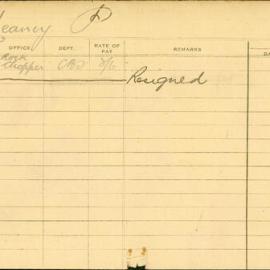 eaney
OFFICE. DEPT. RATE OF PAY REMARKS DA
Rock Chopper
Resigned